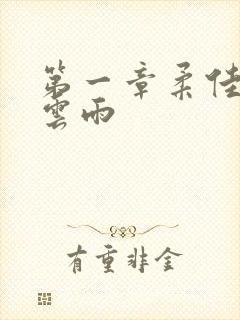 第一章柔佳
雲雨
有重非金